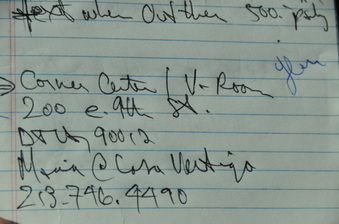 text when out then 500. party
glen
Corner Center / V-Room
200 e. 9th St.
DTLA, 90012
Maria @ Casa Vertigo
213-746.4490